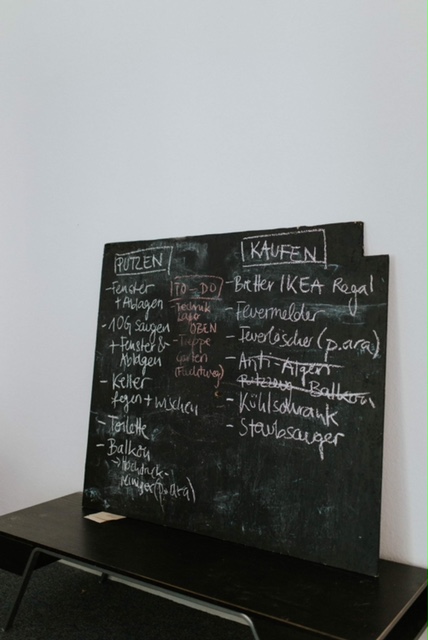 PUTZEN
- Fenster
+ Ablagen
- 1OG saugen
+ Fenster &
Ablagen
- Keller
fegen + wischen
- Toilette
- Balkon
→ Hochdruck-
reiniger (p.ara)
TO-DO
- Technik
OZEN
- Treppe
Garten
KAUFEN
- Bretter IKEA Regal
- Feuermelder
- Feuerlöscher (p.ara)
- Anti-Algen
Balkon
- Kühlschrank
- Staubsauger